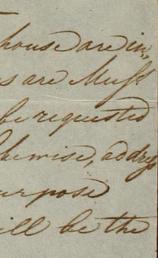 house are in
s are Must
be requested
likewise, addres
urpose
ill be the